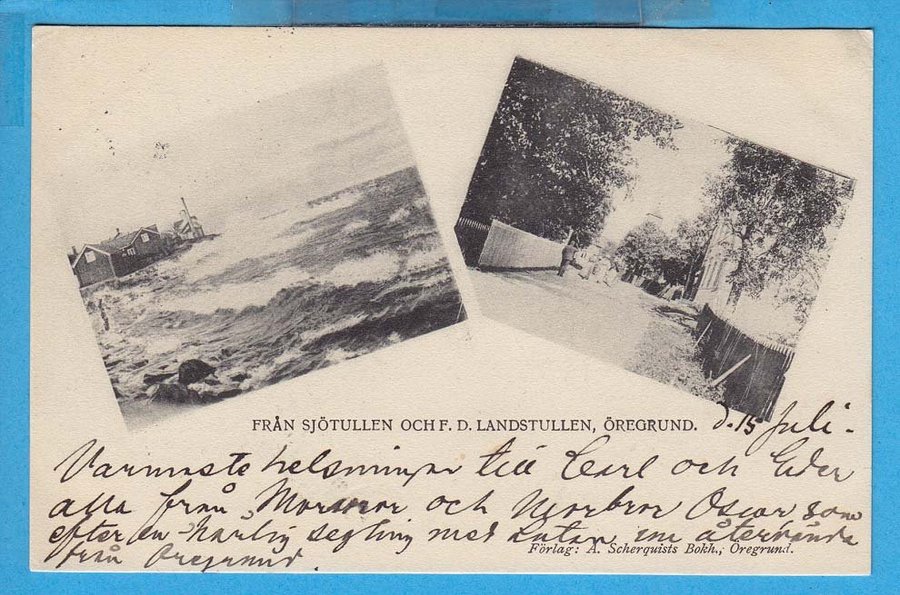 FRÅN SJÖTULLEN OCH F. D. LANDSTULLEN, ÖREGRUND.
d. 15 Juli -
Varmaste helsningar till Carl och Eder
alla från Mormor och Morbror Oscar som
efter en härlig segling med nu återvända
från Öregrund.
Förlag: A. Scherquists Bokh., Öregrund.